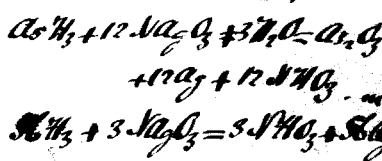 AsH₃ + 12 NAgO₃ + 3H₂O = As₂O₃
+ 12 Ag + 12 NHO₃.
H₃ + 3 NAgO₃ = 3 NHO₃ +